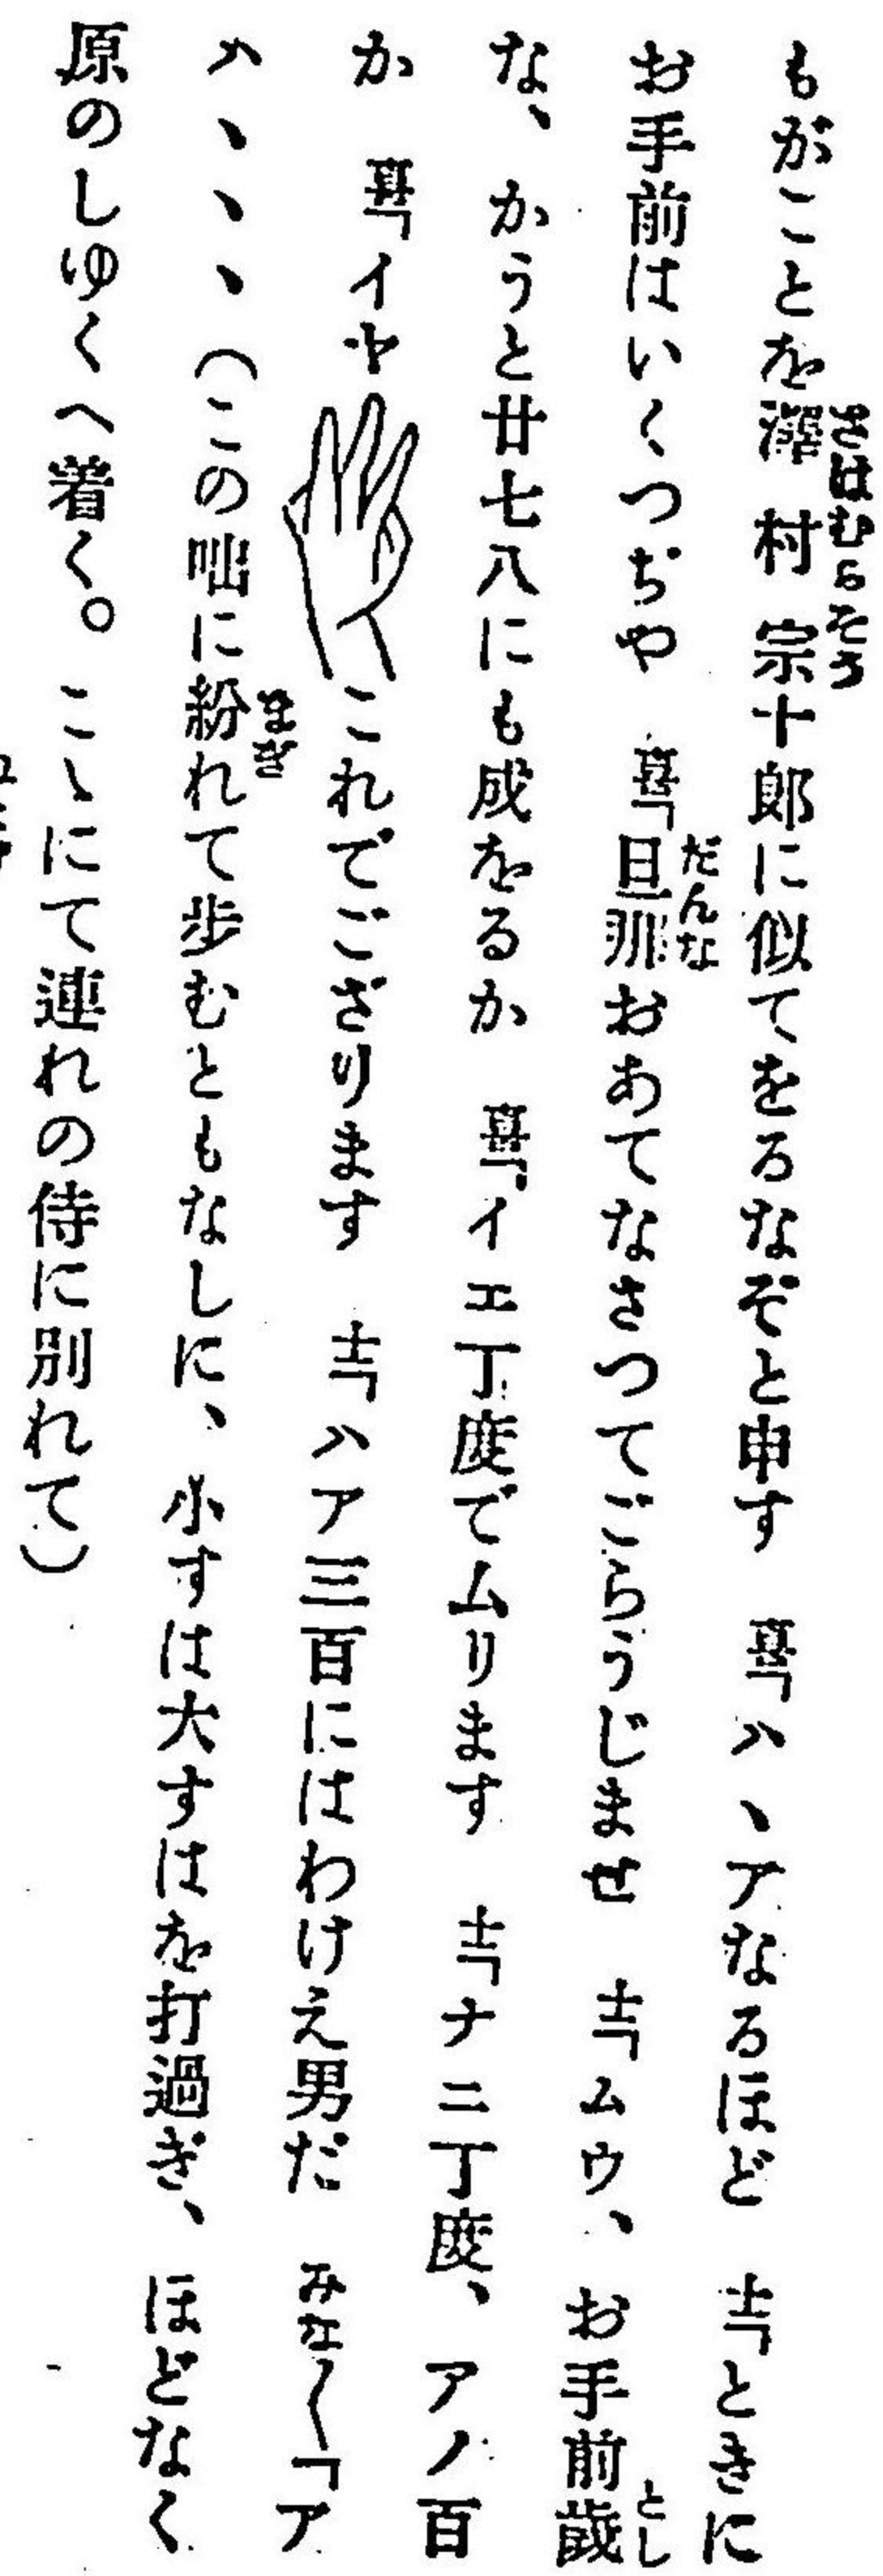 もがことを澤村宗十郎に似てをるなぞと申す　喜「ハヽアなるほど　士「ときに
お手前はいくつぢや　喜「旦那おあてなさつてごらうじませ　士「ムウ、お手前歳
な、かうと廿七八にも成をるか　喜「イエ丁度でムります　士「ナニ丁度、アノ百
か　喜「イヤ　これでござります　士「ハア三百にはわけえ男だ　みな〳〵「ア
ハヽヽヽ（この咄に紛れて歩むともなしに、小すは大すはを打過ぎ、ほどなく
原のしゆくへ着く。こゝにて連れの侍に別れて）
さはむらそう
だんな
とし
まぎ